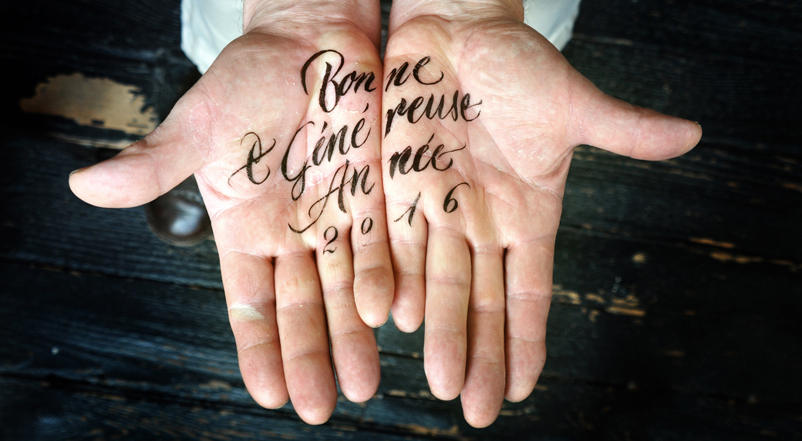 Bonne
& Généreuse
Année
2016